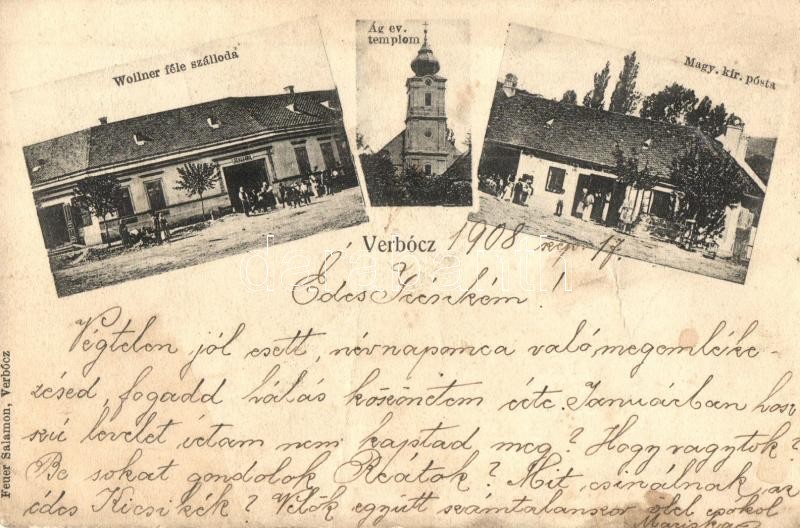 Wollner féle szálloda
Ág ev.
templom
Magy. kir. pósta
Verbócz 1908 szept 17.
Édes Icésikém!
Végtelen jól esett, névnapomra való megemléke
zésed, fogadd hálás köszönetem érte. Januárban hosz
szú levelet írtam nem kaptad meg? Hogy vagytok?
Be sokat gondolok Reátok? Mit csinálnak az
édes Kicsikék? Velök együtt számtalanszor ölel csókol
Mariska
Feuer Salamon, Verbócz